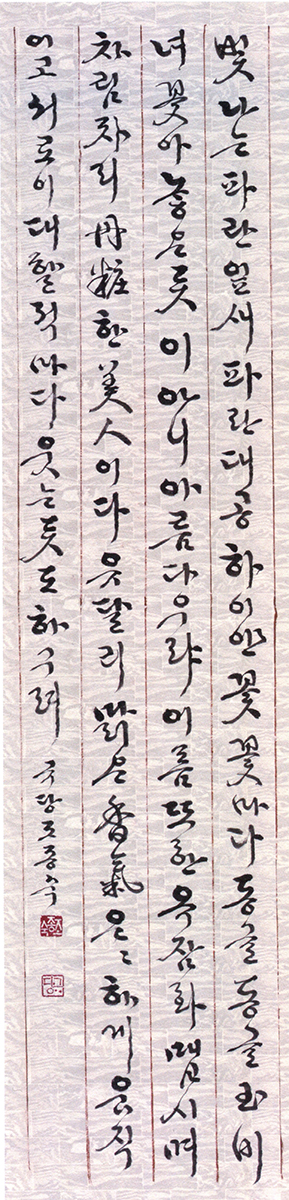 빛나는 파란 잎새 파란 대공 하이얀 꽃 꽃마다 동글동글 玉비
녀 꽂아 놓은듯이 아니 아름다우랴 이름또한 옥잠화 맵시며
차림차리 丹粧한 美人이다 유달리 맑은 香氣 은〻하게 움직
이고 서로이 대할적마다 웃는듯도 하구려 국당 조종숙